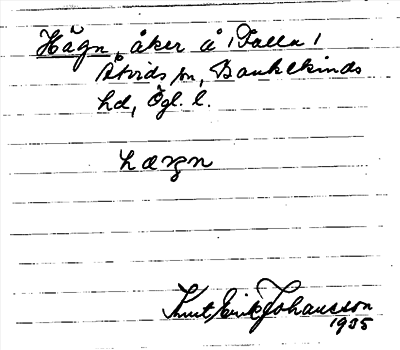 Hägn, åker å /Falla/
Åtvids sn, Bankekinds
hd, Ögl. l.
hægn
Knut Erik Johansson
1935